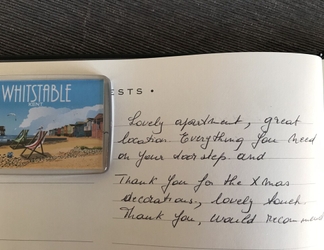 WHITSTABLE
KENT
ESTS •
Lovely apartment, great
location Everything you need
on your doorstep and
Thank you for the Xmas
decorations, lovely touch.
Thank you, would recommend